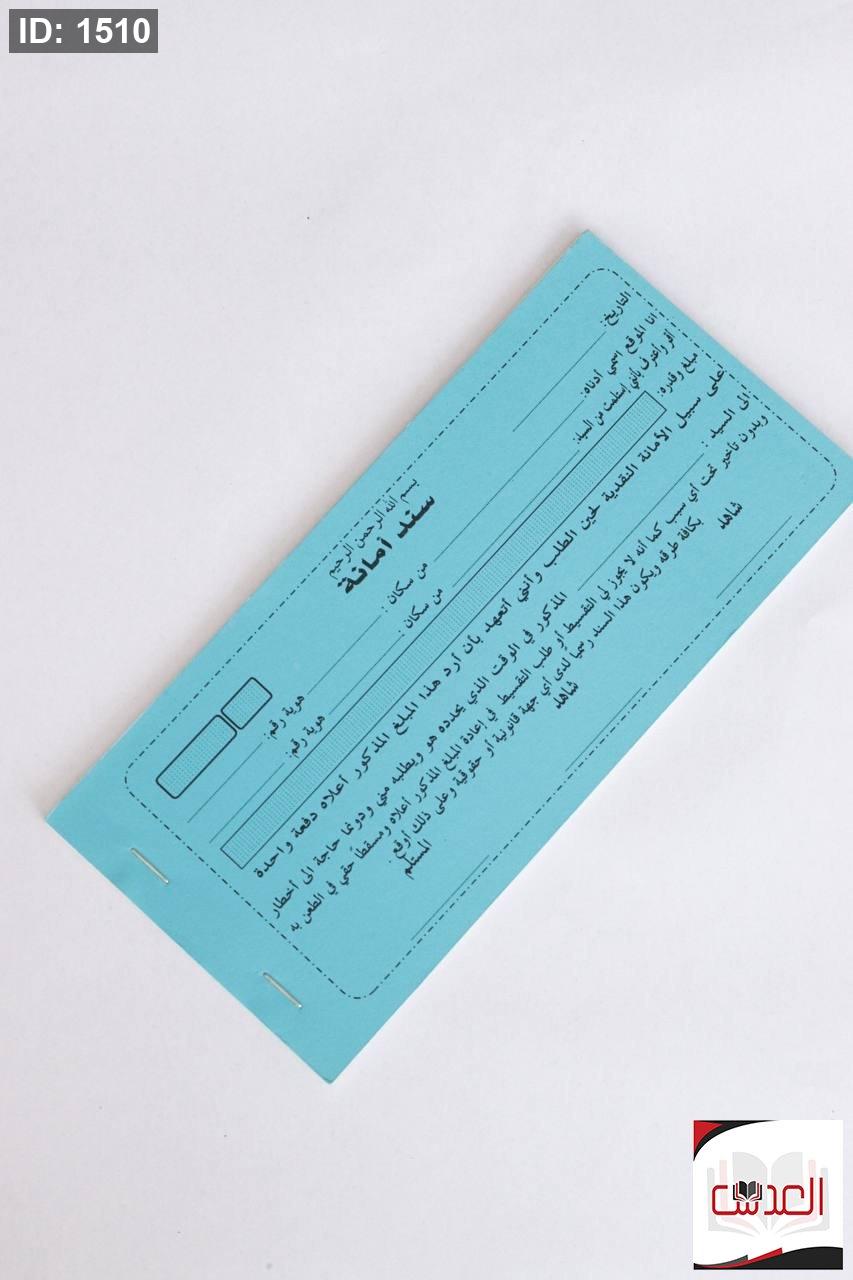 ID: 1510
بسم الله الرحمن الرحيم
سند أمانة
التاريخ:
أنا الموقع اسمي أدناه: من سكان: هوية رقم:
أقر وأعترف بأنني إستلمت من السيد: من سكان: هوية رقم:
مبلغ وقدره:
على سبيل الأمانة النقدية لحين الطلب وأنني أتعهد بان أرد هذا المبلغ المذكور أعلاه دفعة واحدة
الى السيد: المذكور في الوقت الذي يحدده هو ويطلبه مني ودونما حاجة الى أخطار
وبدون تأخير تحت أي سبب كما أنه لا يجوز لي التقسيط أو طلب التقسيط في إعادة المبلغ المذكور أعلاه ومسقطاً حقي في الطعن به
بكافة طرقه ويكون هذا السند رسمياً لدى أي جهة قانونية أو حقوقية وعلى ذلك أوقع.
شاهد شاهد المستلم